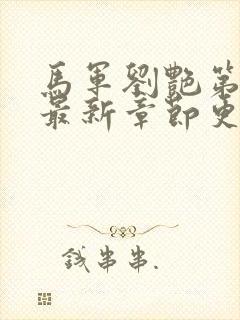 馬軍劉艷第
最新章節更
錢串串.